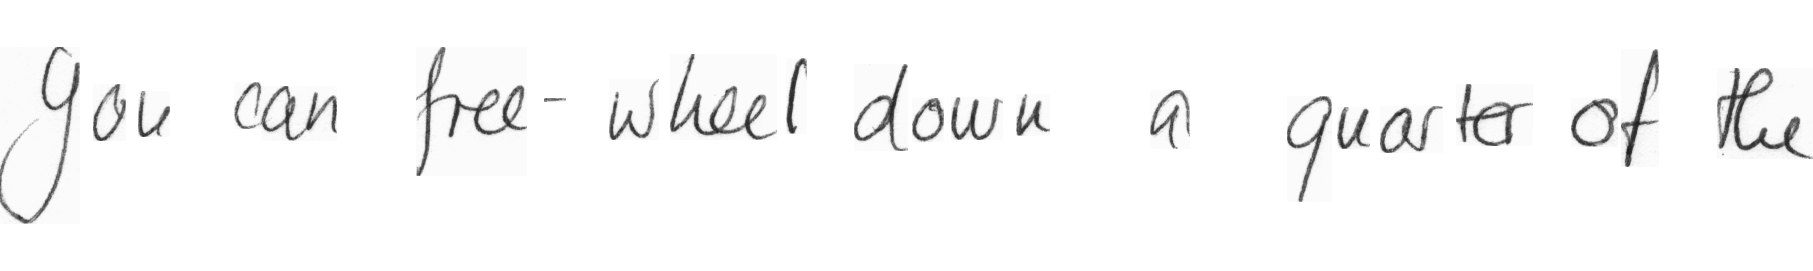 You can free-wheel down a quarter of the